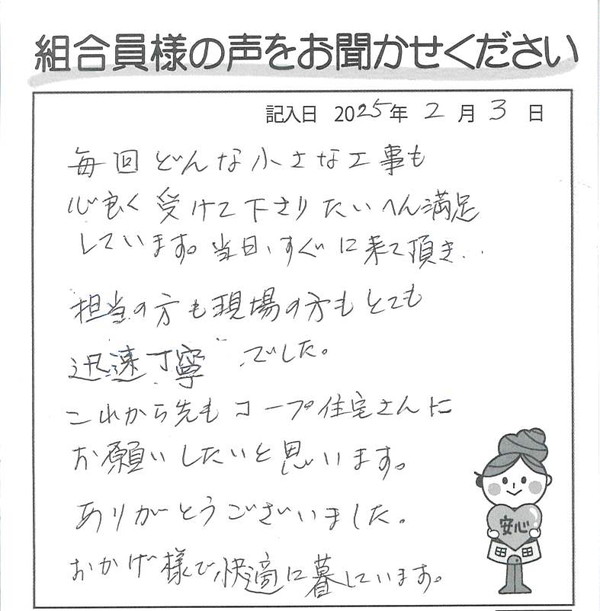 組合員様の声をお聞かせください
記入日 2025年 2月 3日
毎回どんな小さな工事も
心良く受けて下さりたいへん満足
しています。当日、すぐに来て頂き..
担当の方も現場の方もとても
迅速丁寧でした。
これから先もコープ住宅さんに
お願いしたいと思います。
ありがとうございました。
おかげ様で快適に暮しています。
安心